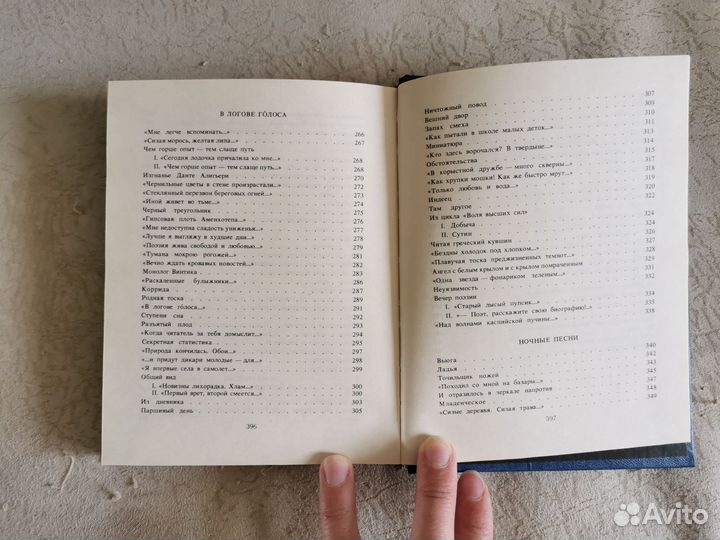 В ЛОГОВЕ ГО́ЛОСА
«Мне легче вспоминать...» 266
«Сизая морось, желтая липа...» 267
Чем горше опыт — тем слаще путь
I. «Сегодня лодочка причалила ко мне...» 268
II. «Чем горше опыт — тем слаще путь...» 268
Изгнание Данте Алигьери 270
«Чернильные цветы в стене произрастали...» 272
«Стеклянный перезвон береговых огней...» 273
«Иной живет во тьме...» 274
Черный треугольник 275
«Гипсовая плоть Аменхотепа...» 276
«Мне недоступна сладость униженья...» 277
«Лучше я выгляжу в худшие дни...» 278
«Поэзия жива свободой и любовью...» 279
«Тумана мокрою рогожей...» 281
«Вечно ждать кровавых новостей...» 282
Монолог Винтика 283
«Раскаленные булыжники...» 286
Коррида 287
Родная тоска
«В логове го́лоса...» 291
Ступени сна
Разъятый плод
«Когда читатель за тебя домыслит...»
Секретная статистика 295
«Природа кончилась. Обои...» 296
«...и придут дикари молодые — для...» 298
«Я впервые села в самолет...» 299
Общий вид
I. «Новизны лихорадка. Хлам...» 300
II. «Первый врет, второй смеется...» 300
Из дневника 303
Паршивый день 305
396
Ничтожный повод 307
Вешний двор 309
Запах смеха 311
«Как пытали в школе малых деток...» 313
Миниатюра 314
«Кто здесь ворочался? В твердыне...» 315
Обстоятельства 316
«В корыстной дружбе — много скверны...» 317
«Как хрупки мошки! Как же быстро мрут...» 319
«Только любовь и вода...» 320
Индеец
Там другое 322
Из цикла «Воля высших сил»
I. Добыча 324
II. Сутин 324
Читая греческий кувшин 327
«Бездны холодок под хлопком...» 328
«Плавучая тоска преджизненных темнот...» 329
Ангел с белым крылом и с крылом помраченным
«Одна звезда — фонариком зеленым...» 331
Неуязвимость 332
Вечер поэзии
I. «Старый лысый пупсик...» 334
II. «— Поэт, расскажите свою биографию!...» 335
«Над волнами каспийской пучины...» 338
НОЧНЫЕ ПЕСНИ
Вьюга 340
Ладья 342
Точильщик ножей 343
«Походил со мной на базары...» 345
И отразилось в зеркале напротив 347
Младенческое 348
«Сизые деревья. Сизая трава...» 349
397
Avito